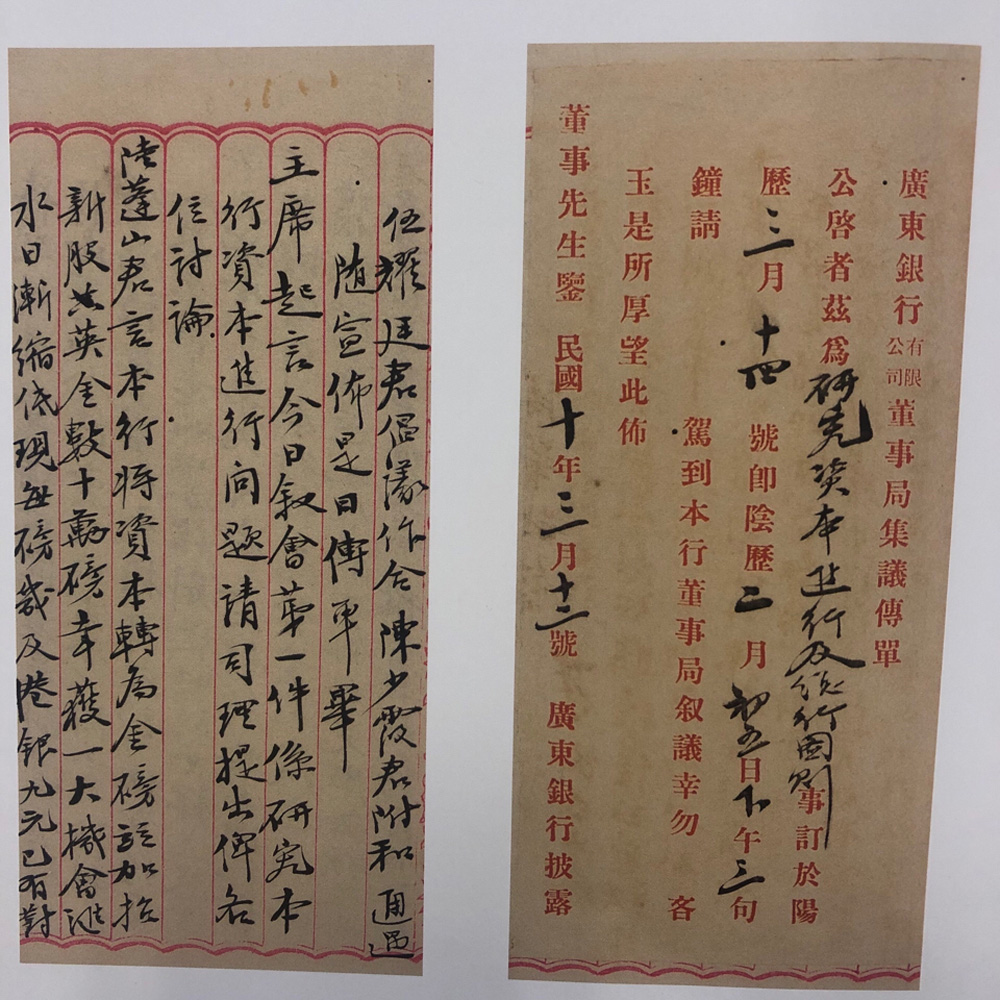 廣東銀行有限公司董事局集議傳單
公啓者茲爲研究資本進行及總行圖則事訂於陽
歷三月十四號卽陰歷二月初五日下午三句
鐘請 駕到本行董事局叙議幸勿 客
玉是所厚望此佈
董事先生鑒 民國十年三月十二號 廣東銀行披露
伍耀廷君倡議作合陳少霞君附和通過
隨宣佈是日傳單畢
主席起言今日叙會第一件係研究本
行資本進行问題請司理提出俾各
位討論
陸蓬山君言本行將資本轉為金磅該加招
新股共英金數十萬磅幸獲一大機會滙
水日漸縮低現每磅裁及港銀九元已有對